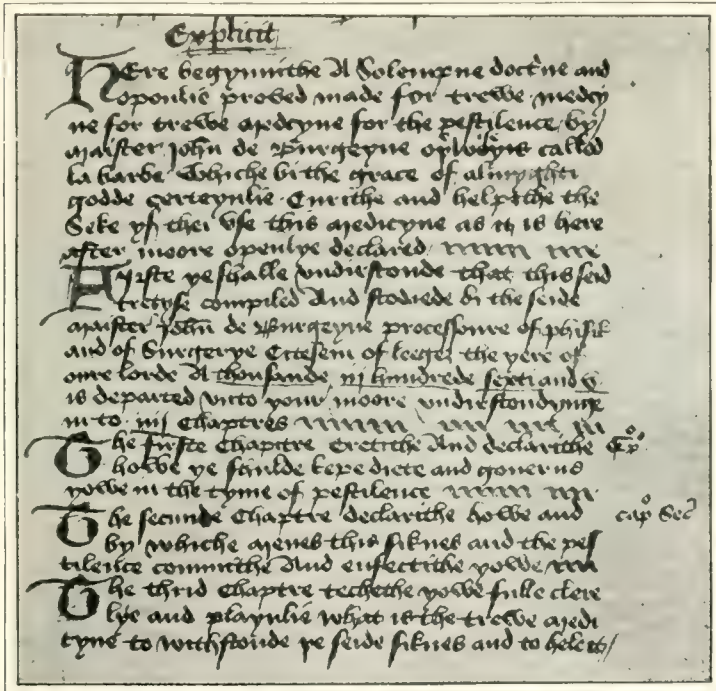 Explicit
HEre begynnithe A Solempne doctrine and
openlie proved made for trewe medcy
ne for trewe medcyne for the pestilence by/
maister John de Burgeyne called
la barbe Whiche bi the grace of almyghti
godde certeynlie Curithe and helpithe the
Seke yf thei use this medicyne as it is here
after moore openlye declared
Fyrste ye schalle undirstonde that this seid
tretyse compiled And stodiede bi the seide
maister John de Burgeyne professoure of phisik
and of Surgerye Citesein of leeges the yere of
oure lorde A thousande iij hundrede sexti and v
is departed unto your moore undirstondynge
in to iiij Chaptres
The firste Chapitre tretithe And declarithe Cap
howe ye schulde kepe diete and governe
yowe in the tyme of pestilence
The secunde Chaptre declarithe howe and cap Sec
by whiche menes this siknes and the pes
tilence committhe And enfectithe yowe
The thrid Chaptre techethe yowe fulle clere
lye and playnlie what is the trewe medi
cyne to withstonde ye seide siknes and to hele it/